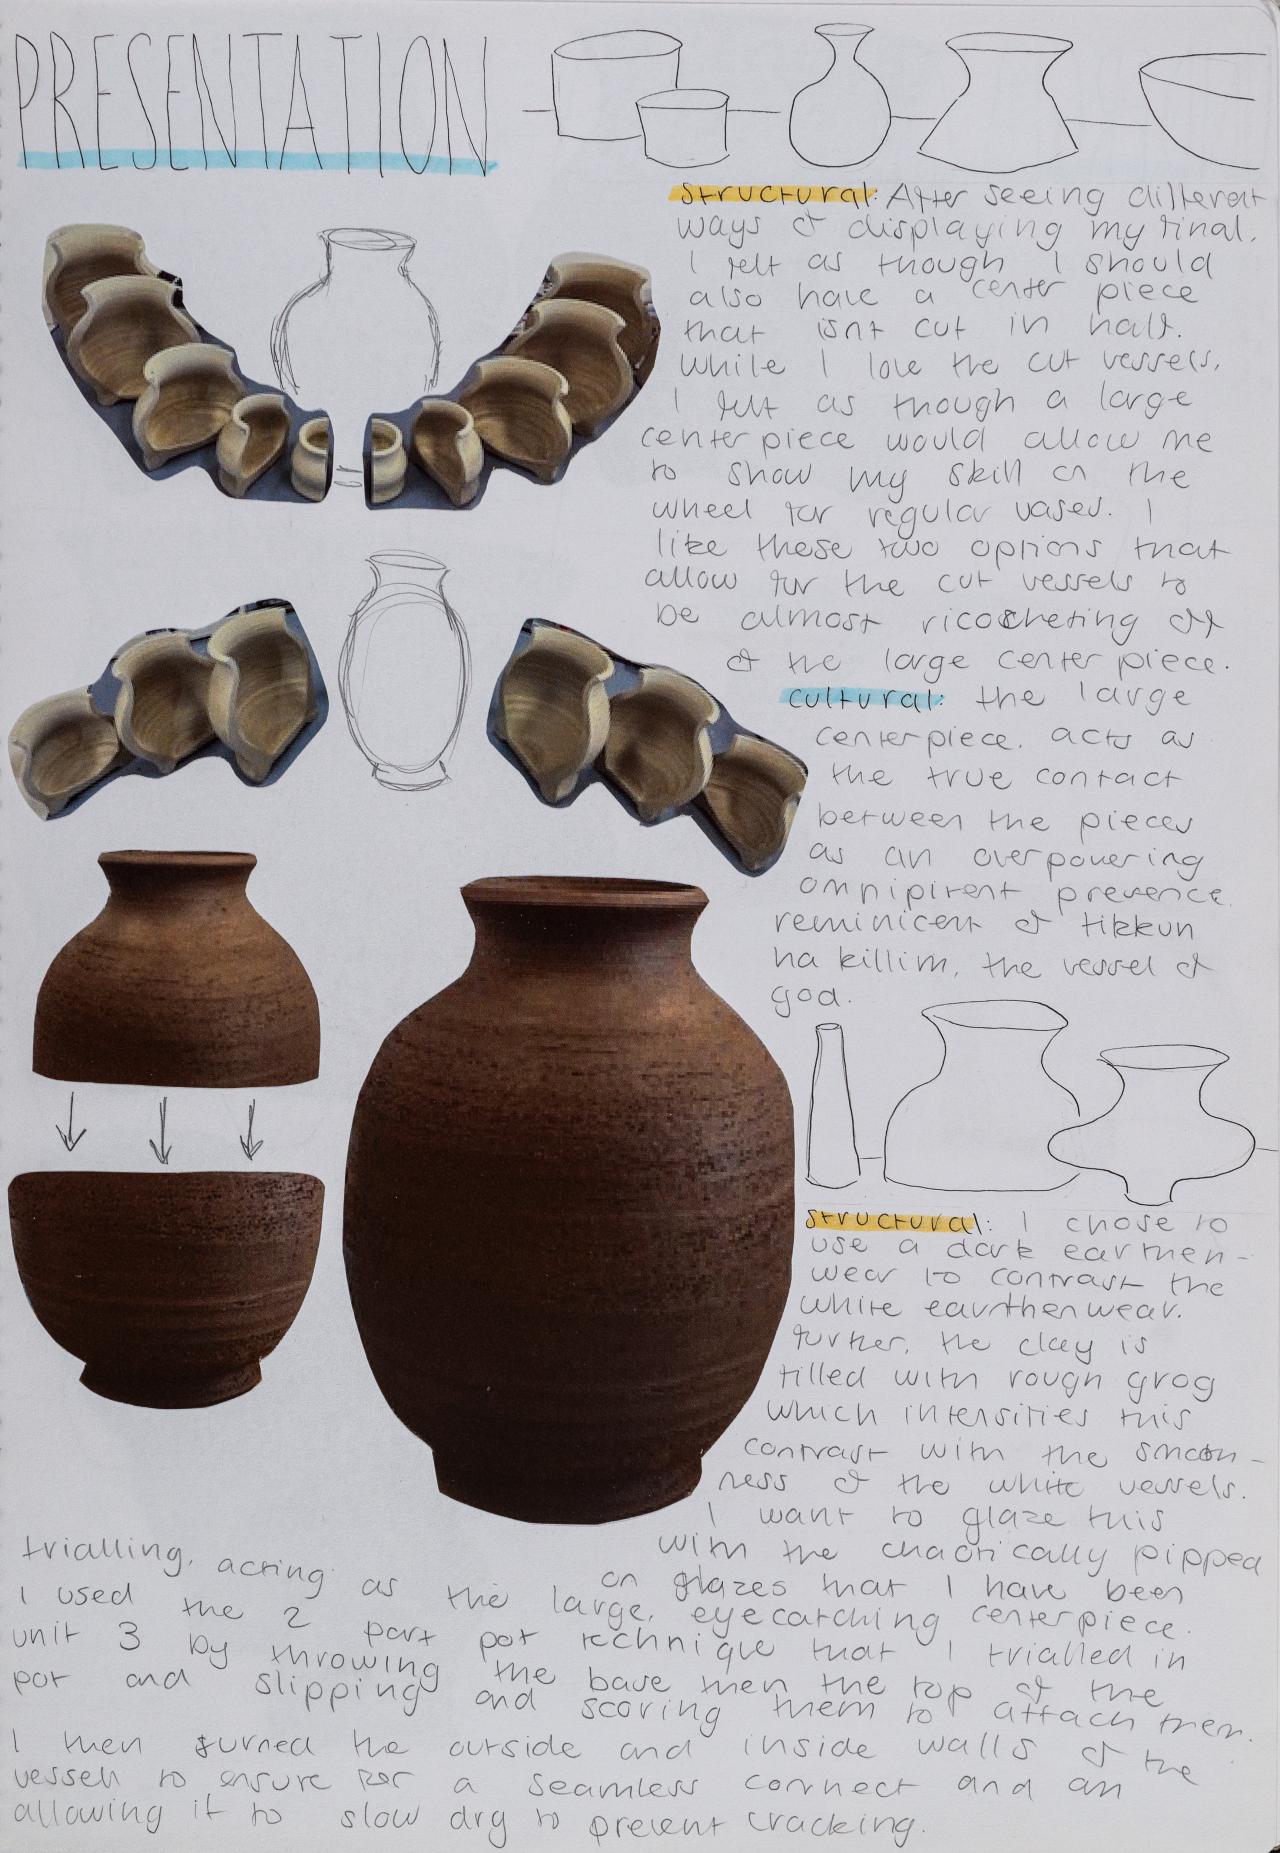 PRESENTATION
structural: After seeing different
ways of displaying my final,
I felt as though I should
also have a center piece
that isnt cut in half.
While I love the cut vessels,
I felt as though a large
center piece would allow me
to show my skill on the
wheel for regular vases. I
like these two options that
allow for the cut vessels to
be almost ricocheting off
of the large center piece.
cultural: the large
centerpiece, acts as
the true contact
between the pieces
as an overpowering
omnipirent presence,
reminicent of tikkun
ha killim, the vessel of
god.
structural: I chose to
use a dark earthen-
wear to contrast the
white earthenwear.
further, the clay is
filled with rough grog
which intensifies this
contrast with the smooth-
ness of the white vessels.
I want to glaze this
with the chaotically pipped
on glazes that I have been
trialling, acting as the large, eyecatching centerpiece.
I used the 2 part pot technique that I trialled in
unit 3 by throwing the base then the top of the
pot and slipping and scoring them to attach them.
I then turned the outside and inside walls of the
vessel to ensure for a seamless connect and an
allowing it to slow dry to prevent cracking.